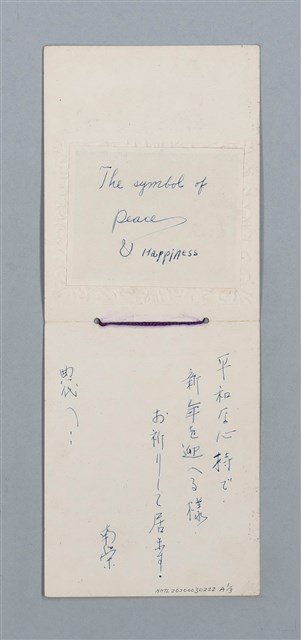 The symbol of
Peace
& Happiness
平和な心持で
新年を迎へる様
お祈りして居ます.
典代へ…
南榮